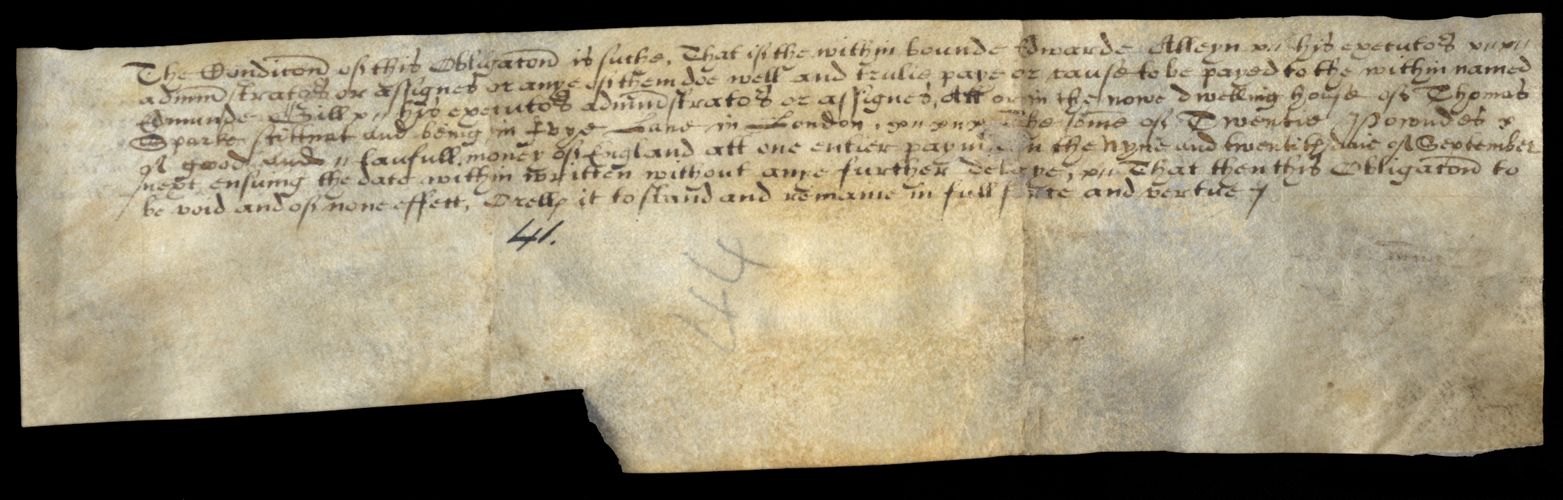 The Condicōn of this Obligatōn is suche, That if the within bounde Edwarde Alleyn his executors
adminīstrators or assignes or anye of them doe well and trulie paye or cause to be payed to the within named
Edmunde Gill his executors adminīstrators or assignes, Att or in the nowe dwelling house of Thomas
Sparke scittuat and being in Ivye Lane in London, The some of Twentie Powndes
of good and laufull money of England att one entier paym in the Nyne and twentith daie of September
next ensuing the date within written without anye further delaye, That then this Obligatōn to
be void and of none effect, Orells it to stand and remaine in full force and vertue
41.
44